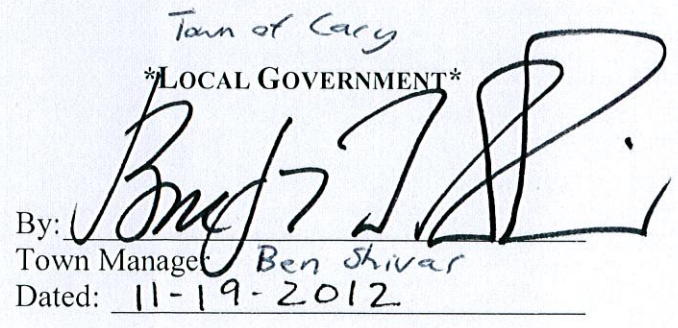 Town of Cary
*LOCAL GOVERNMENT*
By:
Town Manager Ben Shivar
Dated: 11-19-2012